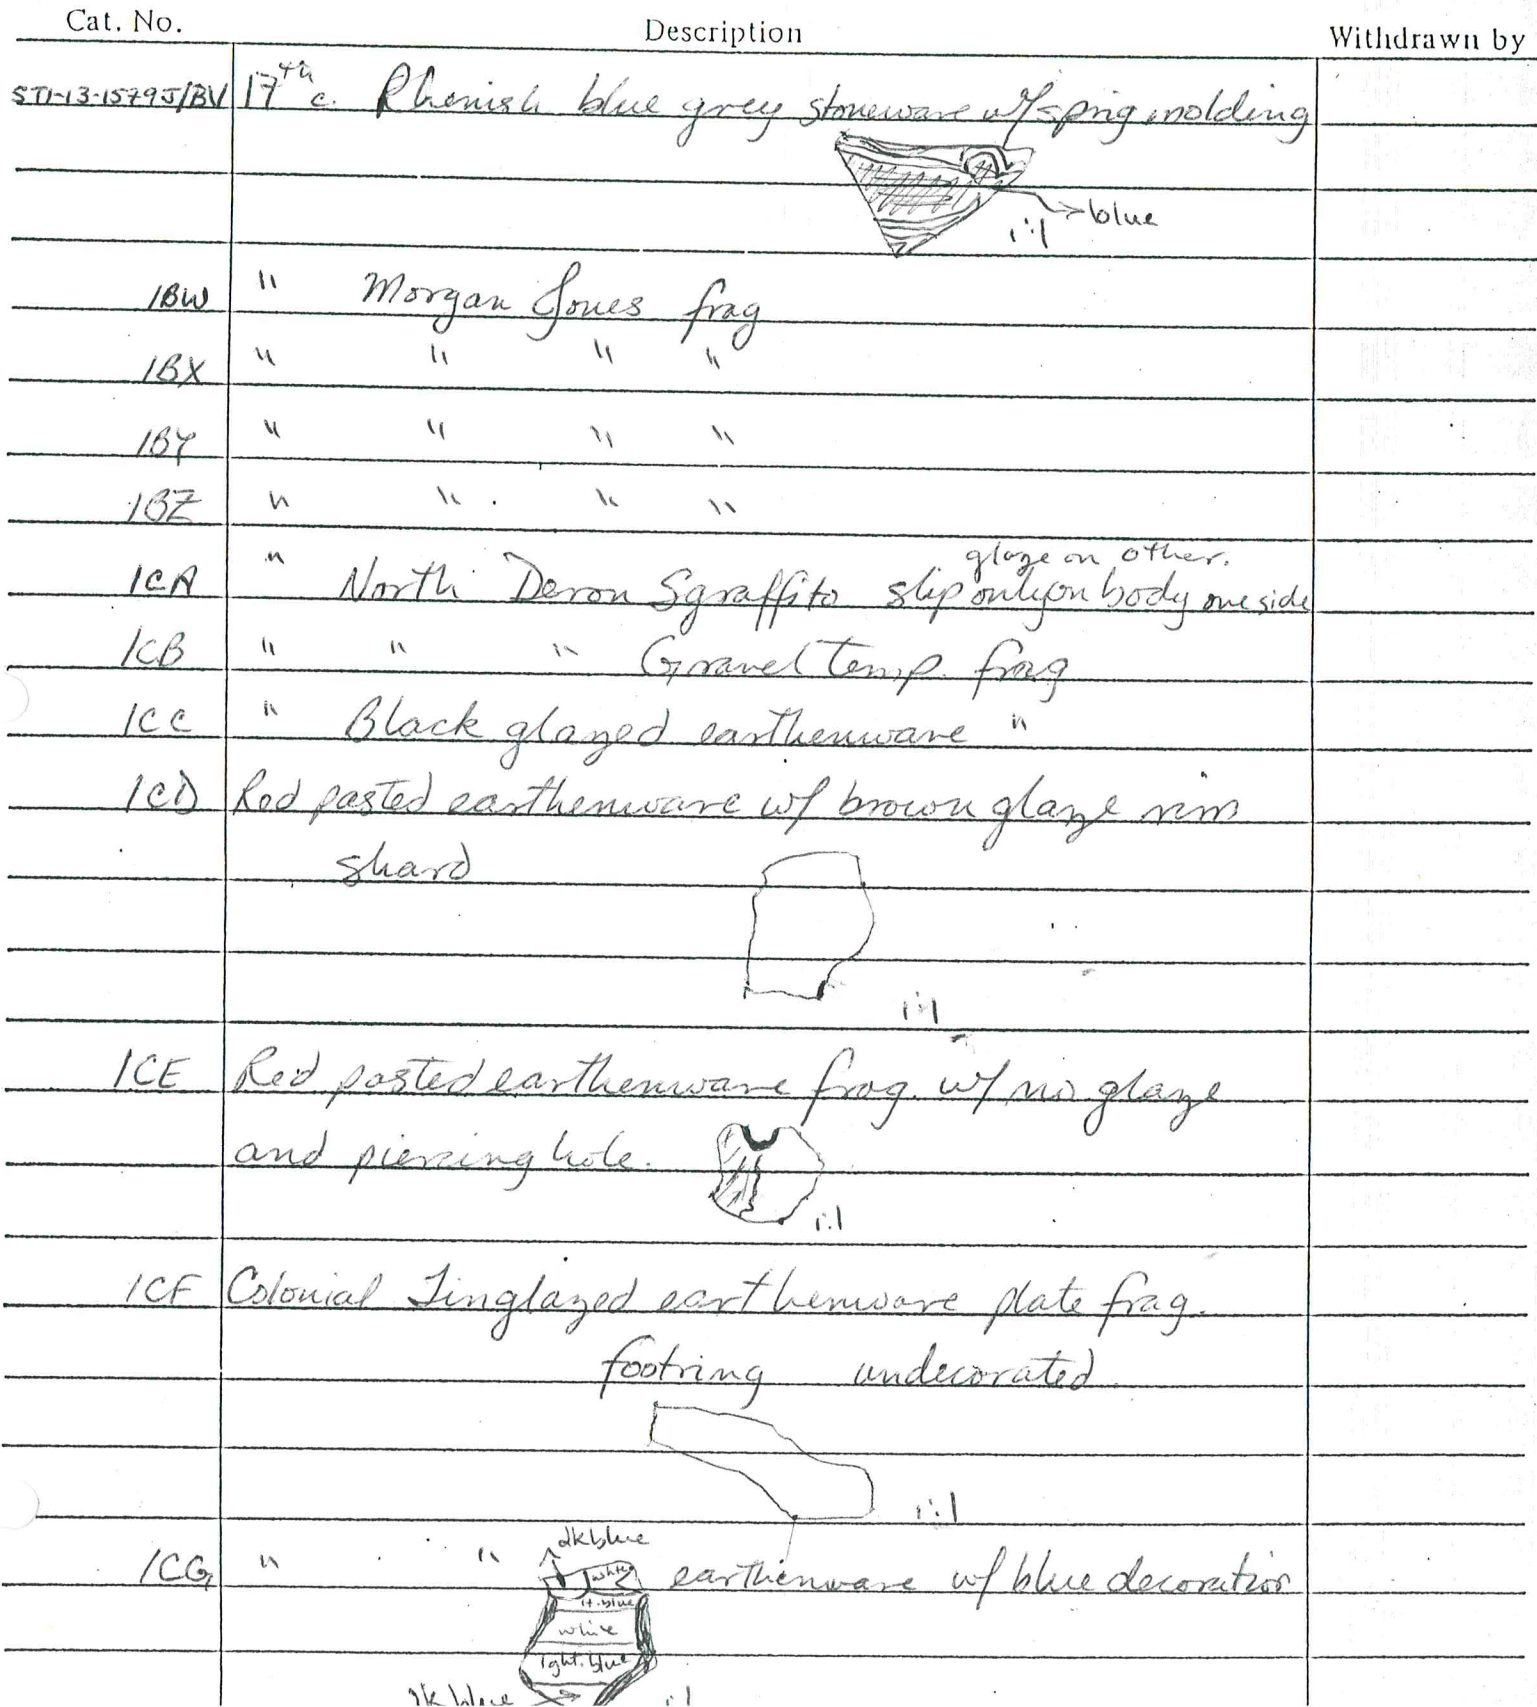 Cat. No. Description Withdrawn by
ST1-13-15795/BV 17th c. Rhenish blue grey stoneware w/ sprig molding
blue
1:1
1BW " Morgan Jones frag
1BX " " " "
1BY " " " "
1BZ " " " "
glaze on other.
1CA " North Devon Sgraffito slip only on body one side
1CB " " " Gravel Temp. frag
1CC " Black glazed earthenware "
1CD Red pasted earthenware w/ brown glaze rim
shard
1:1
1CE Red pasted earthenware frag. w/ no glaze
and piercing hole.
1:1
1CF Colonial Tinglazed earthenware plate frag.
footring undecorated
1:1
dk blue
1CG " " earthenware w/ blue decoration
white
lt. blue
white
light. blue
dk blue
:1